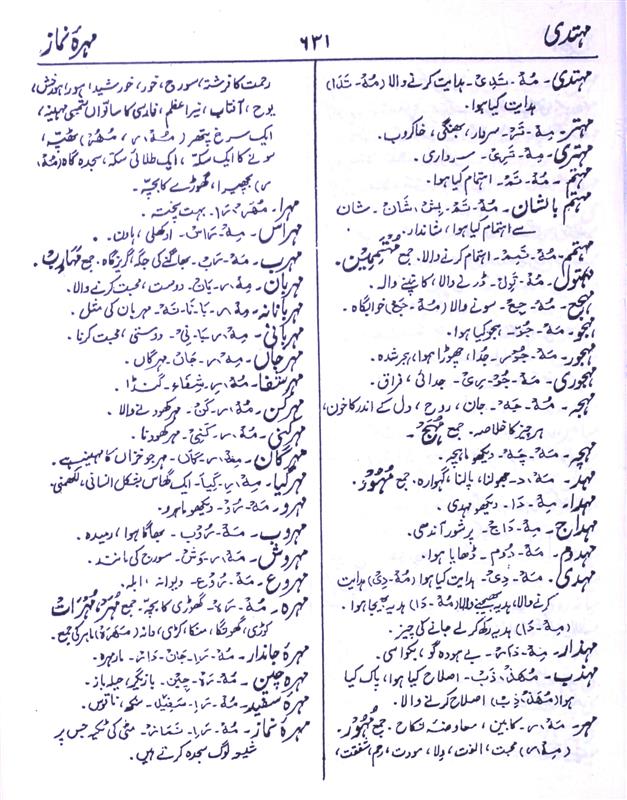 مہتدی ۶۳۱ مہرۂ نماز
مہتدی۔ مُہْ۔ تَدِیْ۔ ہدایت کرنے والا (مُہْ۔ تَدَا)
ہدایت کیا ہوا۔
مہتر۔ مِہْ۔ تَرْ۔ سردار، بھنگی، خاکروب۔
مہتری۔ مِہْ۔ تَرِیْ۔ سرداری۔
مہتم۔ مُہْ۔ تَمْ۔ اہتمام کیا ہوا۔
مہتم بالشان۔ مُہْ۔ تَمْ۔ بِشْ۔ شَانْ۔ شان
سے اہتمام کیا ہوا، شاندار۔
مہتمم۔ مُہْ۔ تَمِمْ۔ اہتمام کرنے والا۔ جمع مُہْتَمِمِیْن۔
مہتول۔ ڈرنے والا، کانپنے والا۔
مہجع۔ مُہْ۔ جِعْ۔ سونے والا (مَہْ۔ جَعْ) خوابگاہ۔
مہجو۔ مَہْ۔ جُوّ۔ ہجو کیا ہوا۔
مہجور۔ مَہْ۔ جُوْر۔ جُدا، چھوڑا ہوا، ہجر شدہ۔
مہجوری۔ مَہْ۔ جُوْ۔ رِیْ۔ جدائی، فراق۔
مہجہ۔ مُہْ۔ جَہْ۔ جان، روح، دل کے اندر کا خون،
ہر چیز کا خلاصہ۔ جمع مُہَجْ۔
مہچہ۔ مَہْ۔ چَہْ۔ دیکھو ماہچہ۔
مہد۔ مَہْ۔ د۔ جھولنا، پالنا، گہوارہ۔ جمع مُہُوْدْ۔
مہدا۔ مِہْ۔ دَا۔ دیکھو مہدی۔
مہداج۔ مِہْ۔ دَاجْ۔ پرشور آندھی۔
مہدوم۔ مَہْ۔ دُوم۔ ڈھایا ہوا۔
مہدی۔ مَہْ۔ دِیْ۔ ہدایت کیا ہوا (مُہْ۔ دِیْ) ہدایت
کرنے والا، ہدیہ بھیجنے والا (مُہْ۔ دَا) ہدیہ بھیجا ہوا۔
(مِہْ۔ دَا) ہدیہ رکھ کر لے جانے کی چیز۔
مہذار۔ مِہْ۔ ذَارْ۔ بے ہودہ گو، بکواسی۔
مہذب۔ مُہَذْ۔ ذَبْ۔ اصلاح کیا ہوا، پاک کیا
ہوا (مُہَذْ۔ ذِبْ) اصلاح کرنے والا۔
مہر۔ مَہْ۔ ر۔ کابین، معاوضہ نکاح۔ جمع مُہُوْرْ۔
(مِہْ۔ ر) محبت، الفت، ولا، مودت، رحم، شفقت،
رحمت کا فرشتہ، سورج، خور، خورشید، ہور،
یوح، آفتاب، نیر اعظم، فارسی کا ساتواں شمسی مہینہ،
ایک سرخ پتھر (مُہْ۔ ر، مُہُرْ) ٹھپہ،
سونے کا ایک سکہ، ایک طلائی سکہ، سجدہ گاہ (مُہْ۔
ر) بچھیرا، گھوڑے کا بچہ۔
مہرا۔ مُہَرْ۔ رَا۔ بہت پختہ۔
مہراس۔ مِہْ۔ رَاسْ۔ اوکھلی، ہاون۔
مہرب۔ مَہْ۔ رَبْ۔ بھاگنے کی جگہ، گریزگاہ۔ جمع مَہَارِبْ۔
مہربان۔ مِہْ۔ رَ۔ بَانْ۔ دوست، محبت کرنے والا۔
مہربانانہ۔ مِہْ۔ رَ۔ بَا۔ نَا۔ نَہْ۔ مہربان کی مثل۔
مہربانی۔ مِہْ۔ رَ۔ بَا۔ نِیْ۔ دوستی، محبت کرنا۔
مہرجان۔ مِہْ۔ رَ۔ جَانْ۔ مہرگاں۔
مہرشفا۔ مُہْ۔ رِ۔ شِفَاءْ۔ گنڈا۔
مہرکن۔ مُہْ۔ رْ۔ کَنْ۔ مہر کھودنے والا۔
مہرکنی۔ مُہْ۔ رْ۔ کَنِیْ۔ مہر کھودنا۔
مہرگان۔ مِہْ۔ رْ۔ گَانْ۔ مہر جو خزاں کا مہینہ ہے۔
مہرگیا۔ مِہْ۔ رْ۔ گِیَا۔ ایک گھاس بشکل انسانی، لکھمنی۔
مہرو۔ مَہْ۔ رُوْ۔ دیکھو ماہرو۔
مہروب۔ مَہْ۔ رُوْب۔ بھاگا ہوا، رمیدہ۔
مہروش۔ مِہْ۔ رْ۔ وَشْ۔ سورج کی مانند۔
مہروع۔ مَہْ۔ رُوْع۔ دیوانہ، ابلہ۔
مہرہ۔ مُہْ۔ رَہْ۔ گھوڑی کا بچہ۔ جمع مُہَرْ، مُہُرَات
کوڑی، گھونگا، منکا، کڑی، دانہ (مَہَرَہْ) ماہر کی جمع۔
مہرۂ جاندار۔ مُہْ۔ رَ۔ اِ۔ جَانْ۔ دَارْ۔ مارمہرہ۔
مہرہ چین۔ مُہْ۔ رَہْ۔ چِیْن۔ بازیگر، حیلہ باز۔
مہرۂ سفید۔ مُہْ۔ رَ۔ اِ۔ سَفِیْد۔ سنکھ، ناقوس۔
مہرۂ نماز۔ مُہْ۔ رَ۔ اِ۔ نَمَازْ۔ مٹی کی ٹکیہ جس پر
شیعہ لوگ سجدہ کرتے ہیں۔